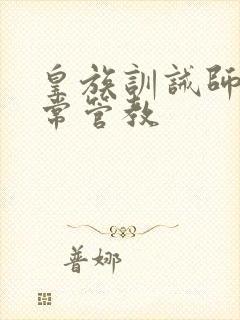 皇族訓誡師
常管教
普娜